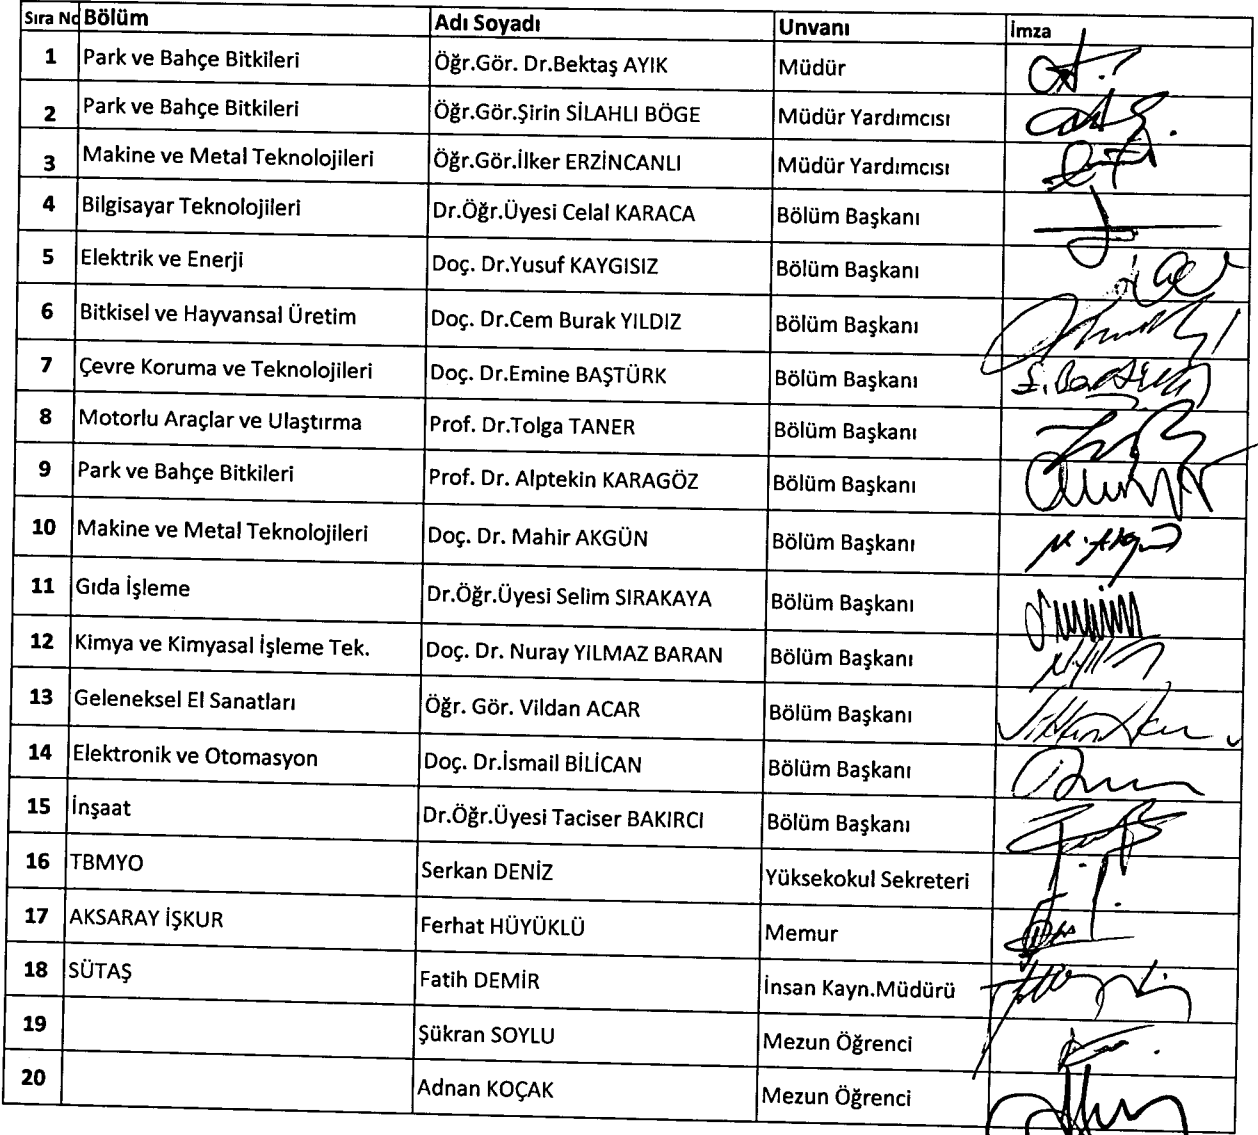 Sıra No Bölüm Adı Soyadı Unvanı İmza
1 Park ve Bahçe Bitkileri Öğr.Gör. Dr.Bektaş AYIK Müdür
2 Park ve Bahçe Bitkileri Öğr.Gör.Şirin SİLAHLI BÖGE Müdür Yardımcısı
3 Makine ve Metal Teknolojileri Öğr.Gör.İlker ERZİNCANLI Müdür Yardımcısı
4 Bilgisayar Teknolojileri Dr.Öğr.Üyesi Celal KARACA Bölüm Başkanı
5 Elektrik ve Enerji Doç. Dr.Yusuf KAYGISIZ Bölüm Başkanı
6 Bitkisel ve Hayvansal Üretim Doç. Dr.Cem Burak YILDIZ Bölüm Başkanı
7 Çevre Koruma ve Teknolojileri Doç. Dr.Emine BAŞTÜRK Bölüm Başkanı
8 Motorlu Araçlar ve Ulaştırma Prof. Dr.Tolga TANER Bölüm Başkanı
9 Park ve Bahçe Bitkileri Prof. Dr. Alptekin KARAGÖZ Bölüm Başkanı
10 Makine ve Metal Teknolojileri Doç. Dr. Mahir AKGÜN Bölüm Başkanı
11 Gıda İşleme Dr.Öğr.Üyesi Selim SIRAKAYA Bölüm Başkanı
12 Kimya ve Kimyasal İşleme Tek. Doç. Dr. Nuray YILMAZ BARAN Bölüm Başkanı
13 Geleneksel El Sanatları Öğr. Gör. Vildan ACAR Bölüm Başkanı
14 Elektronik ve Otomasyon Doç. Dr.İsmail BİLİCAN Bölüm Başkanı
15 İnşaat Dr.Öğr.Üyesi Taciser BAKIRCI Bölüm Başkanı
16 TBMYO Serkan DENİZ Yüksekokul Sekreteri
17 AKSARAY İŞKUR Ferhat HÜYÜKLÜ Memur
18 SÜTAŞ Fatih DEMİR İnsan Kayn.Müdürü
19 Şükran SOYLU Mezun Öğrenci
20 Adnan KOÇAK Mezun Öğrenci